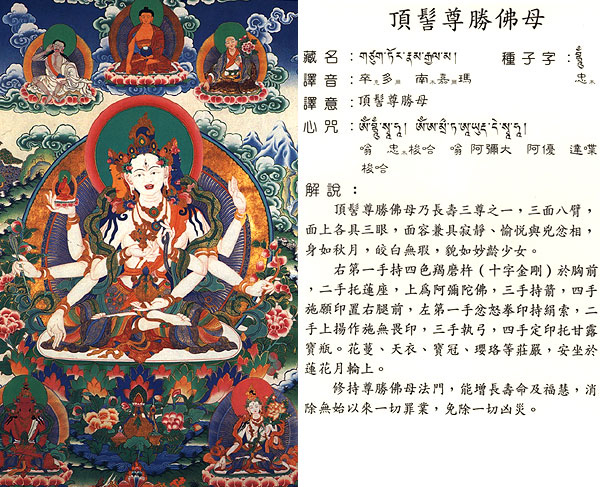 頂髻尊勝佛母
藏名：གཙུག་ཏོར་རྣམ་རྒྱལ་མ། 種子字：བྷྲཱུྃ
譯音：卒多 南嘉瑪 忠
譯意：頂髻尊勝母
心咒：ༀ་བྷྲཱུྃ་སྭཱ་ཧཱ། ༀ་ཨ་
嗡 忠梭哈 嗡 阿彌大 阿優 達喋
梭哈
解說：
頂髻尊勝佛母乃長壽三尊之一，三面八臂，
面上各具三眼，面容兼具寂靜、愉悅與兇忿相，
身如秋月，皎白無瑕，貌如妙齡少女。
右第一手持四色羯磨杵（十字金剛）於胸前
，二手托蓮座，上爲阿彌陀佛，三手持箭，四手
施願印置右腿前，左第一手忿怒拳印持絹索，二
手上揚作施無畏印，三手執弓，四手定印托甘露
寶瓶。花蔓、天衣、寶冠、瓔珞等莊嚴，安坐於
蓮花月輪上。
修持尊勝佛母法門，能增長壽命及福慧，消
除無始以來一切罪業，免除一切凶災。